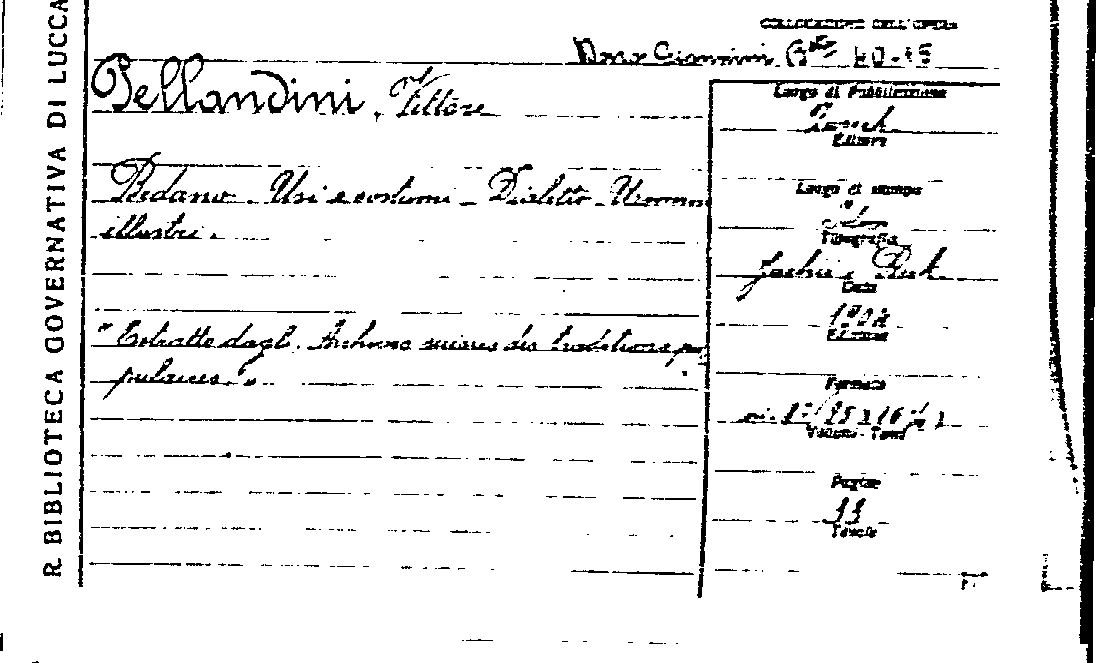 R. BIBLIOTECA GOVERNATIVA DI LUCCA
COLLOCAZIONE DELL'OPERA
Dono Giannini 40-15
Pellandini, Vittore
Bedano - Usi e costumi - Dialetto - Uomini
illustri.
"Estratto dagli Archives suisses des traditions po
pulaires."
Luogo di Pubblicazione
Zurich
Editore
Luogo di stampa
Tipografia
Data
Edizione
Formato
Volumi - Tomi
Pagine
Tavole